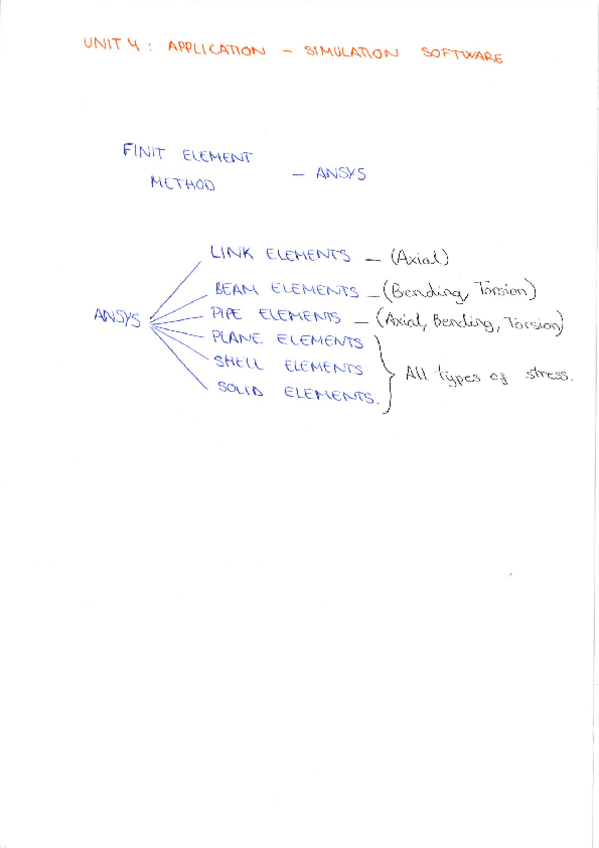 UNIT 4 : APPLICATION - SIMULATION SOFTWARE
FINIT ELEMENT
METHOD
- ANSYS
LINK ELEMENTS - (Axial)
BEAM ELEMENTS - (Bending, Torsion)
ANSYS
PIPE ELEMENTS - (Axial, Bending, Torsion)
PLANE ELEMENTS
SHELL ELEMENTS
All types of stress.
SOLID ELEMENTS.